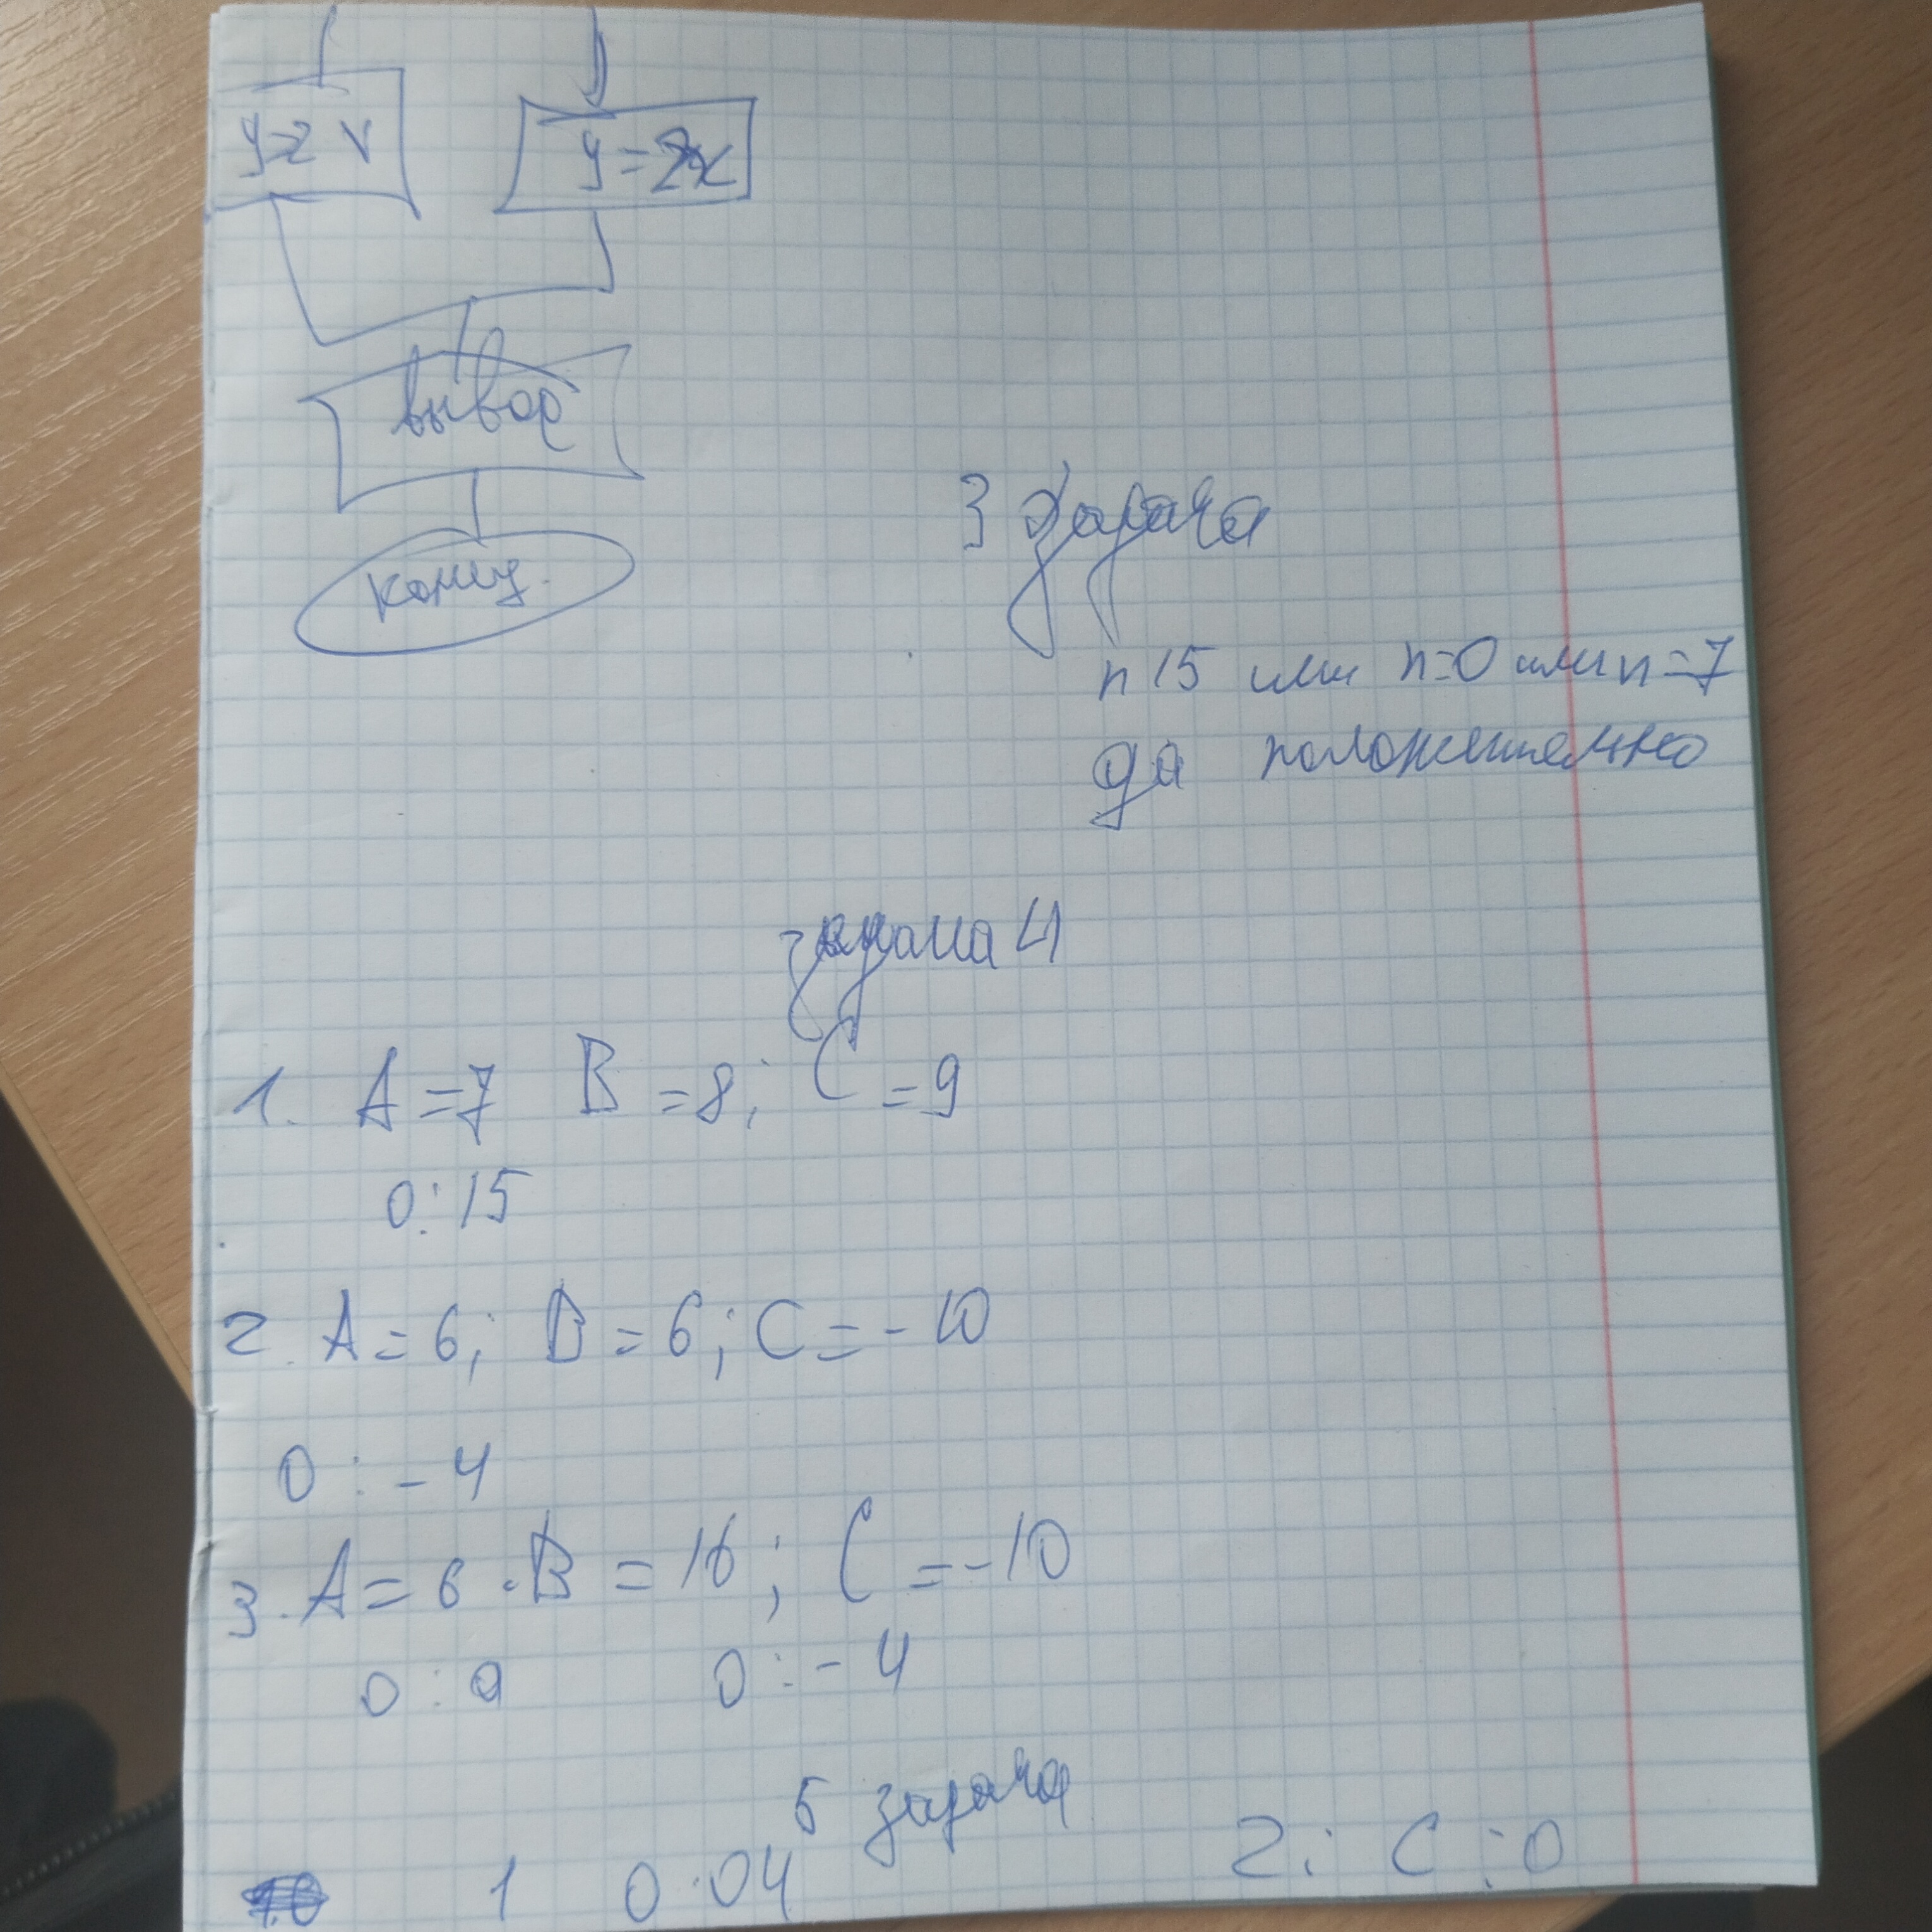 y=2x
вывод
конец
3 задача
n 15 или n=0 или n=7
да положительно
задача 4
1. A=7 B=8; C=9
0:15
2. A=6; B=6; C=-10
0:-4
3. A=6. B=16; C=-10
0:0 0:-4
5 задача
1 0:04 2: C:0